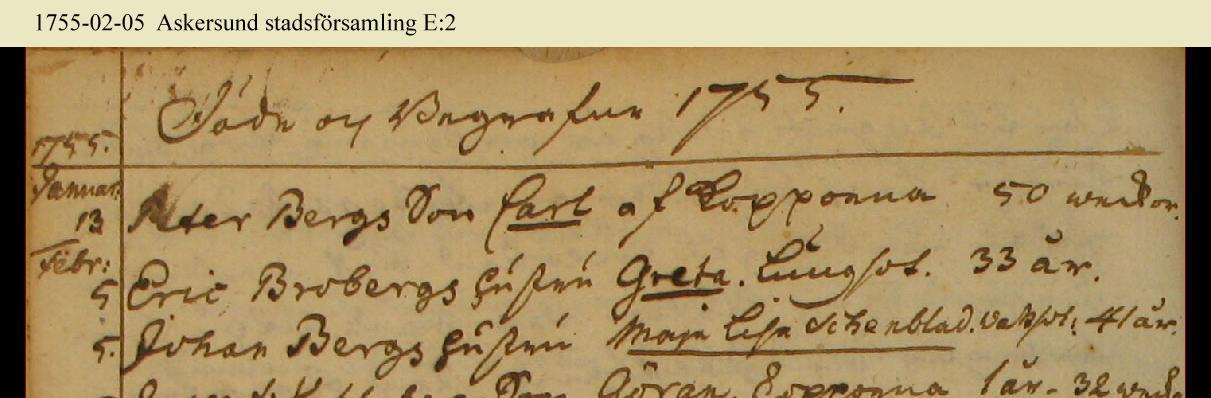 1755-02-05 Askersund stadsförsamling E:2
Döde och Begrafne 1755.
1755.
Januar:
13 Peter Bergs Son Carl af Kopporna 50 weckor.
Febr:
5 Eric Brobergs hustru Greta. Lungsot. 33 år.
5. Johan Bergs hustru Maja Lisa Schenblad. Vattsot: 41 år.
Son Göran Kopporna 1 år. 32 weck